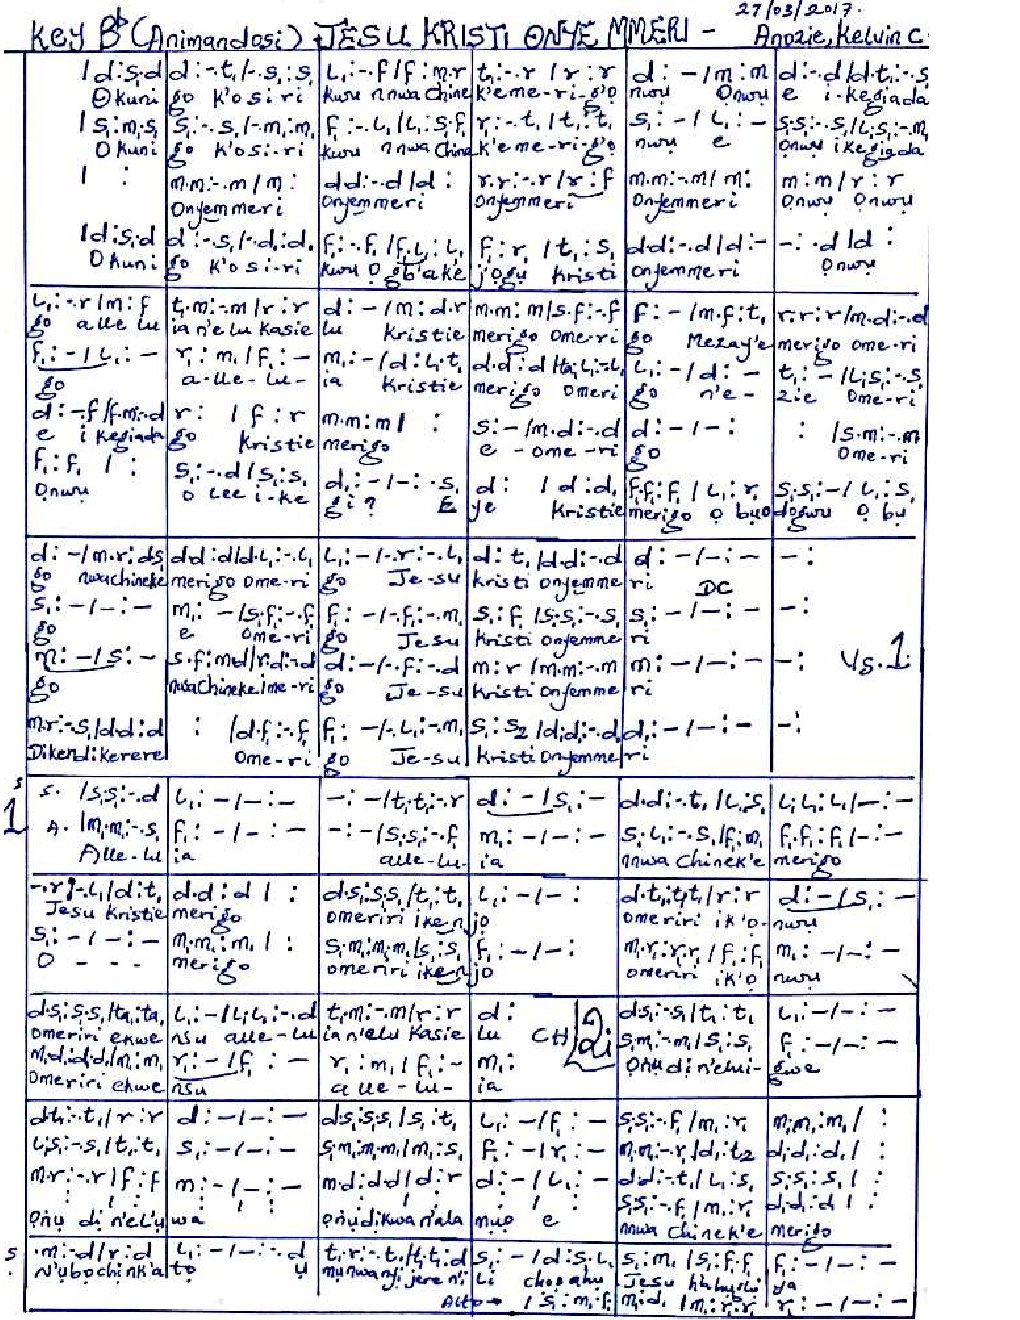 27/03/2017.
Key B♭ (Animandosi) JESU KRISTI ONYE MMERI - Anozie, Kelvin C.
| d:s,:d | d:-.t,/-.s,:s, | L,:-.f/f:m.r | t,:-.r/r:r | d:-/m:m | d:-.d/d.t,:-.s
Okuni go k'osiri kwu nnwa Chine k'eme-ri-go nwu Onwu e i-kegiada
| s,:m,.s, | s,:-.s,/-.m,:m, | f,:-.L,/L,:s,.f, | r,:-.t,/t,:t, | s,:-/L,:- | s,.s,:-.s,/L,.s,:-.m,
Okuni go k'osi-ri kwu nnwa China k'eme-ri-go nwu e Onwu ikegiada
| : | m.m:-.m/m: | d.d:-.d/d: | r.r:-.r/r:f | m.m:-.m/m: | m:m/r:r
Onyemmeri Onyemmeri Onyemmeri Onyemmeri Onwu Onwu
| d:s,:d | d:-.s,/-.d,:d, | f,:-.f,/f,.L,:L, | f,:r,/t,:s, | d.d:-.d/d:- | -:.d/d:
Okuni go k'osi-ri kwu Ogbake j'ogu Kristi onyemmeri Onwu
L,:-.r/m:f | t,.m:-.m/r:r | d:-/m:d.r | m.m:m/s.f:-.f | f:-/m.f:t, | r.r:r/m.d:-.d
go alle lu ia n'elu Kasie lu Kristie merigo Ome-ri go Mezay'e merigo ome-ri
f,:-/L,:- | r,:m,/f,:- | m,:-/d:L,.t, | d.d:d/ta,.L,:-.L, | L,:-/d:- | t,:-/L,.s,:-.s
go a-lle-lu- ia Kristie merigo Omeri go n'e- zie Ome-ri
d:-.f/f.m:-.d | r:/f:r | m.m:m/ : | s:-/m.d:-.d | d:-/-: | :/s.m:-.m
e i kegiada go Kristie merigo e -ome-ri go Ome-ri
f,:f,/ : | s,:-.d/s,:s, | d,:-/-:-.s, | d:/d:d, | f,.f,:f,/L,:r, | s,.s,:-/L,:s,
Onwu o lee i-ke gi? E ye Kristie merigo o buo dogwu o bu
d:-/m.r:d.s | d.d:d/d.L,:-.L, | L,:-/-.r:-.L, | d:t,/d.d:-.d | d:-/-:- | -:
go nwachineke merigo ome-ri go Je-su Kristi onyemme ri DC
s,:-/-:- | m,:-/s,.f,:-.f | f,:-/-.f,:-.m, | s,:f,/s,.s,:-.s | s,:-/-:- | -:
go e Ome-ri go Jesu Kristi onyemme ri
m:-/s:- | s.f:m.d/r.d:-.d | d:-/-.f:-.d | m:r/m.m:-.m | m:-/-:- | -: Vs.1
go nwa Chineke ime-ri go Je-su Kristi onyemme ri
m.r:-.s,/d.d:d | :/d.f:-.f | f,:-/-.L,:-.m, | s,:s2/d,.d,:-.d, | d,:-/-:- | -:
Dikendikerere Ome-ri go Je-su Kristi onyemme ri
1 s. /s,.s,:-.d | L,:-/-:- | -:-/t,.t,:-.r | d:-/s,:- | d.d:-.t,/L,:s, | L,.L,:L,/-:-
A. /m,.m,:-.s, | f,:-/-:- | -:-/s,.s,:-.f, | m,:-/-:- | s,.L,:-.s,/f,:m, | f,.f,:f,/-:-
Alle-lu ia alle-lu- ia nnwa Chinek'e merigo
-.r:-.L,/d:t, | d.d:d/ : | d.s,:s,.s,/t,:t, | L,:-/-: | d.t,:t,.t,/r:r | d:-/s,:-
Jesu Kristie merigo omeriri ikenjo omeriri ik'o- nwu
s,:-/-:- | m,.m,:m,/ : | s,.m,:m,.m,/s,:s, | f,:-/-: | m,.r,:r,.r,/f,:f, | m,:-/-:-
O - - - merigo omeriri ikenjo omeriri ik'o nwu
d.s,:s,.s,/ta,:ta, | L,:-/L,.L,:-.d | t,.m:-.m/r:r | d: | d.s,:-.s,/t,:t, | L,:-/-:-
omeriri ekwe nsu alle-lu ia n'elu Kasie lu CH 2di
m,.d,:d,.d,/m,:m, | r,:-/f,:- | r,:m,/f,:- | m,: | s,.m,:-.m,/s,:s, | f,:-/-:-
omeriri ekwe nsu a lle-lu- ia Onu di n'elui- gwe
d.t,:-.t,/r:r | d:-/-:- | d.s,:s,.s,/s,:t, | L,:-/f,:- | s,.s,:-.f,/m,:r, | m,.m,:m,/ :
L,.s,:-.s,/t,:t, | s,:-/-:- | s,.m,:m,.m,/m,:s, | f,:-/r,:- | m,.m,:-.r,/d,:t2 | d,.d,:d,/ :
m.r:-.r/f:f | m:-/-:- | m.d:d.d/d:r | d:-/L,:- | d.d:-.t,/L,:s, | s,.s,:s,/ :
: : : : : : s,.s,:-.f,/m,:r, | d,.d,:d,/ :
Onu di n'elu wa onu dikwa n'ala muo e nnwa Chinek'e merigo
s. .m:-.d/r:d | L,:-/-:-.d | t,.r:-.t,/t,.t,:d | s,:-/d:s,.L, | s,:m,/s,:f,.f, | f,:-/-:-
N'ubochi nk'a to ya Jesu
Alto → /s,:m,.f, | m,:d,/m,:r,.r, | r,:-/-:-